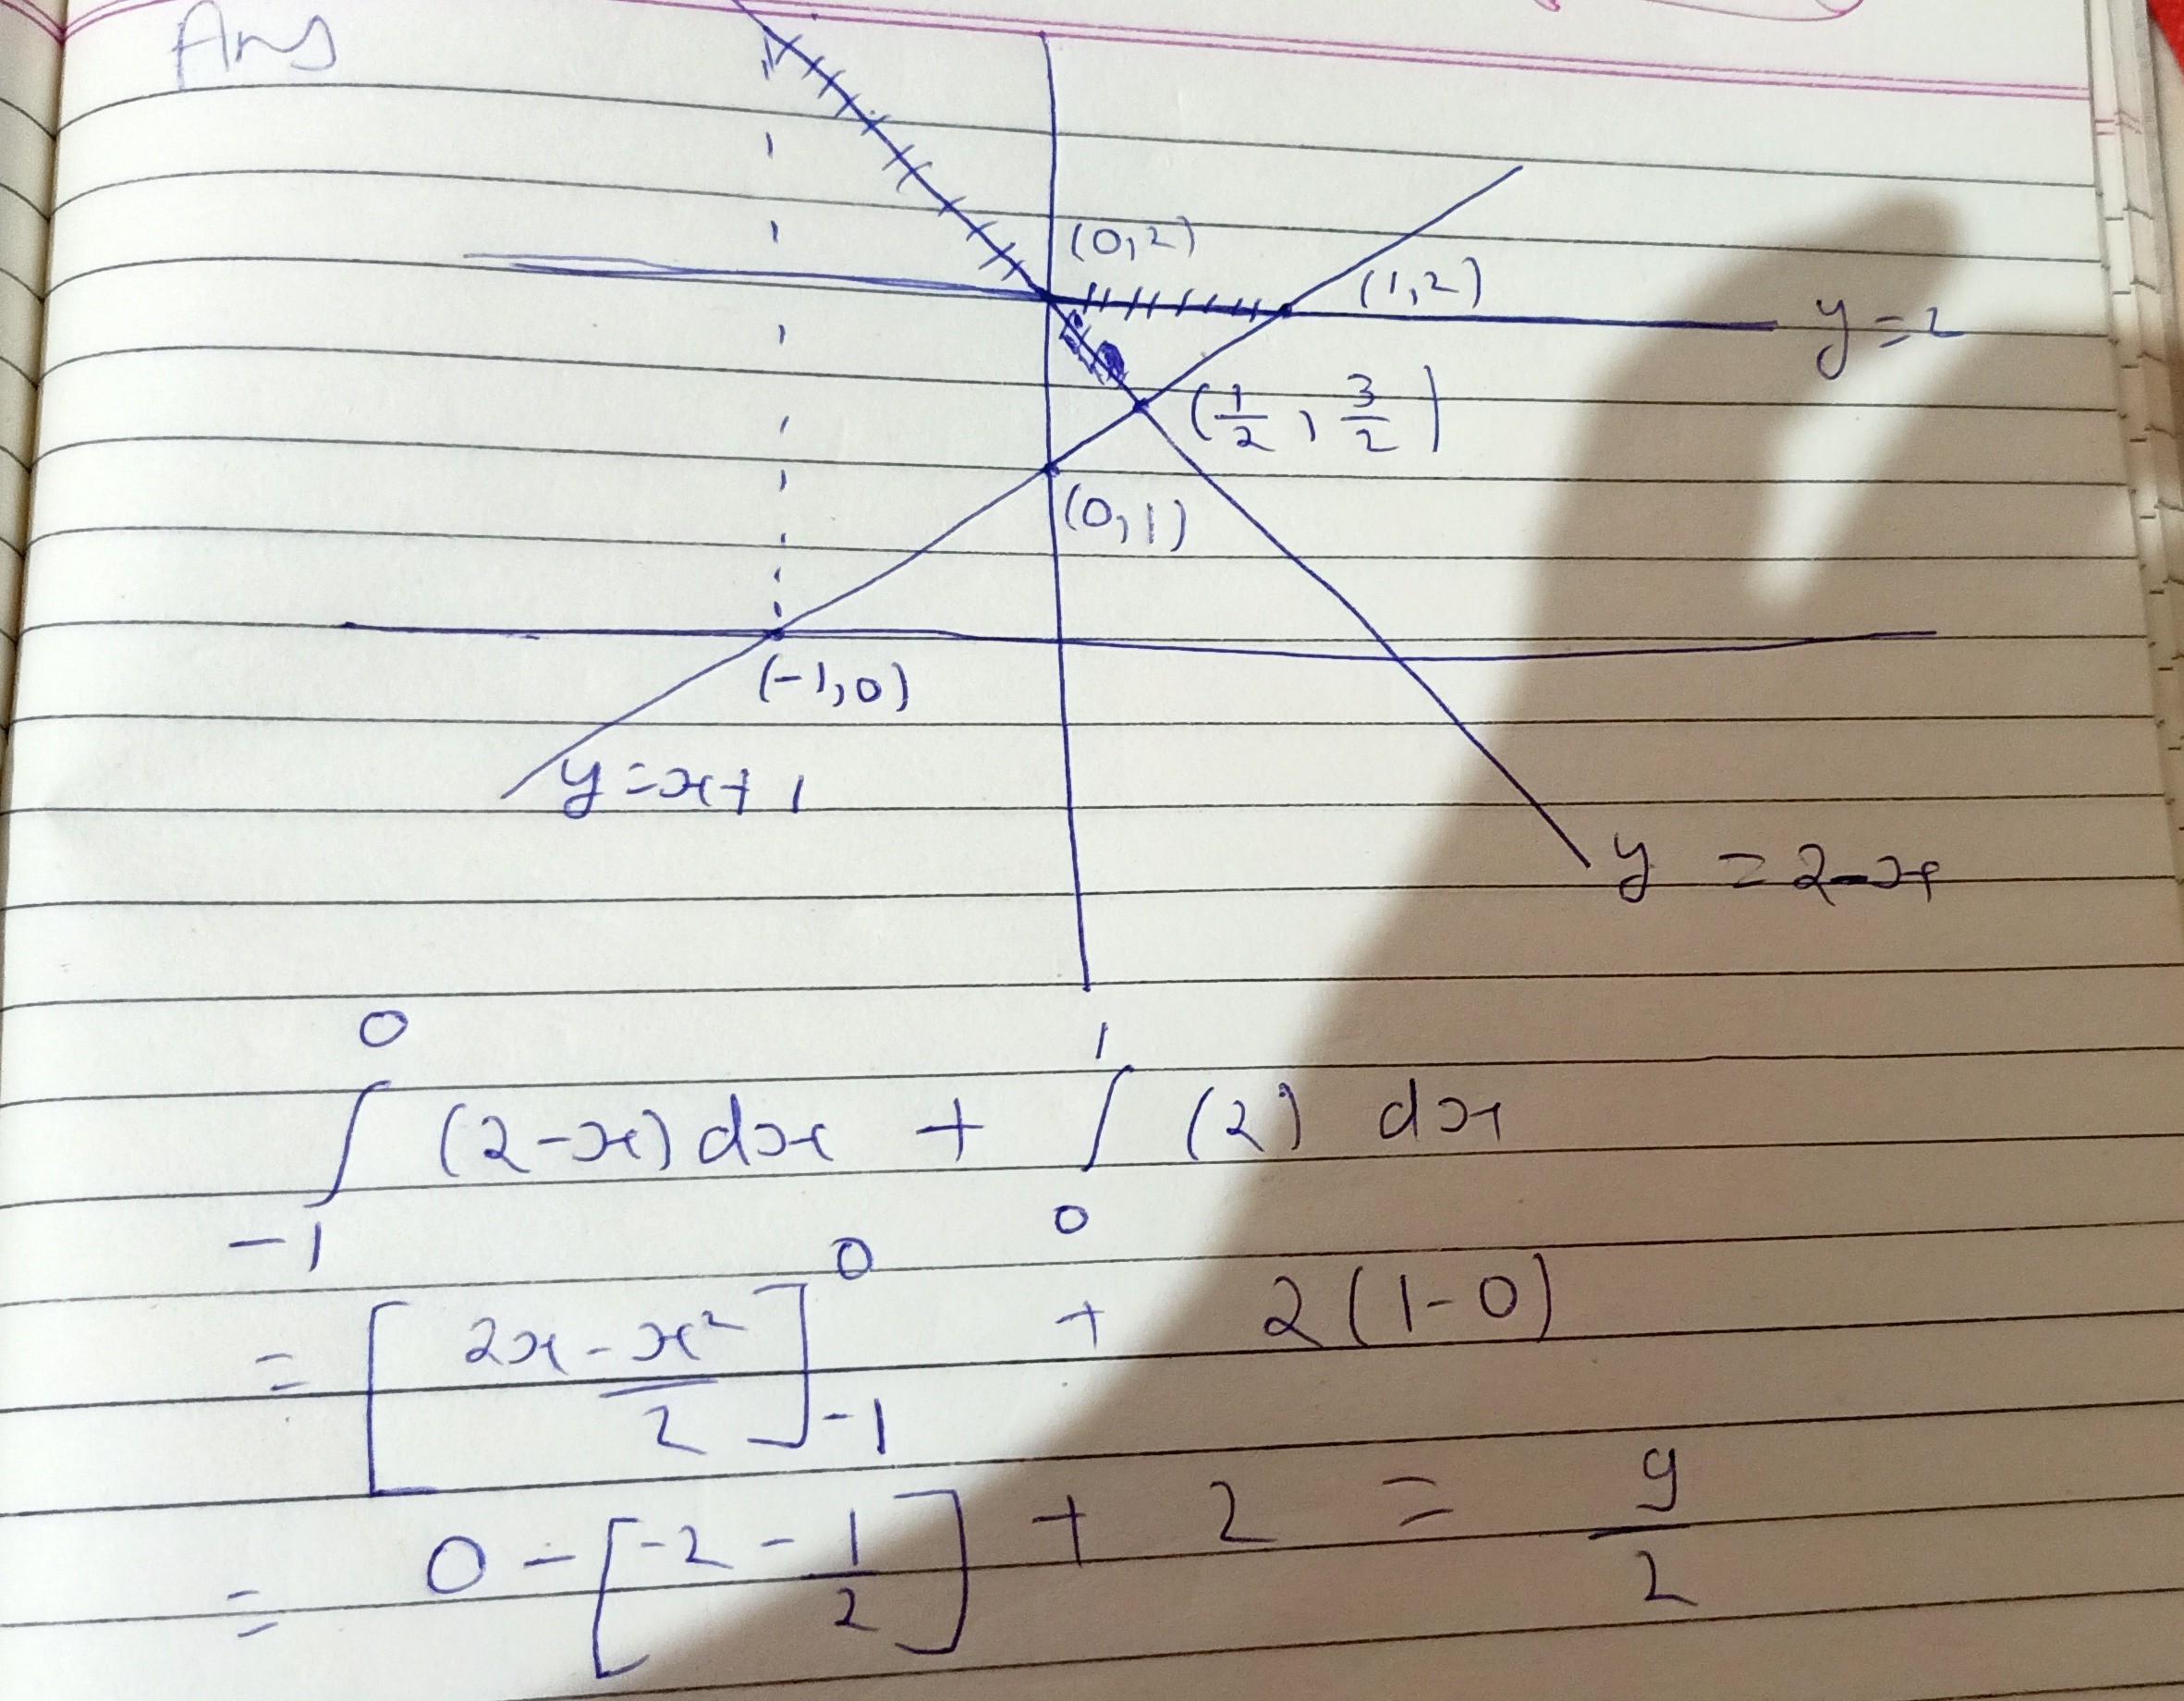 Ans
(0,2)
(1,2)
y = 2
(1/2, 3/2)
(0,1)
(-1,0)
y = x + 1
y = 2-x
∫_{-1}^{0} (2-x) dx + ∫_{0}^{1} (2) dx
= [2x - x²/2]_{-1}^{0} + 2(1-0)
= 0 - [-2 - 1/2] + 2 = 9/2